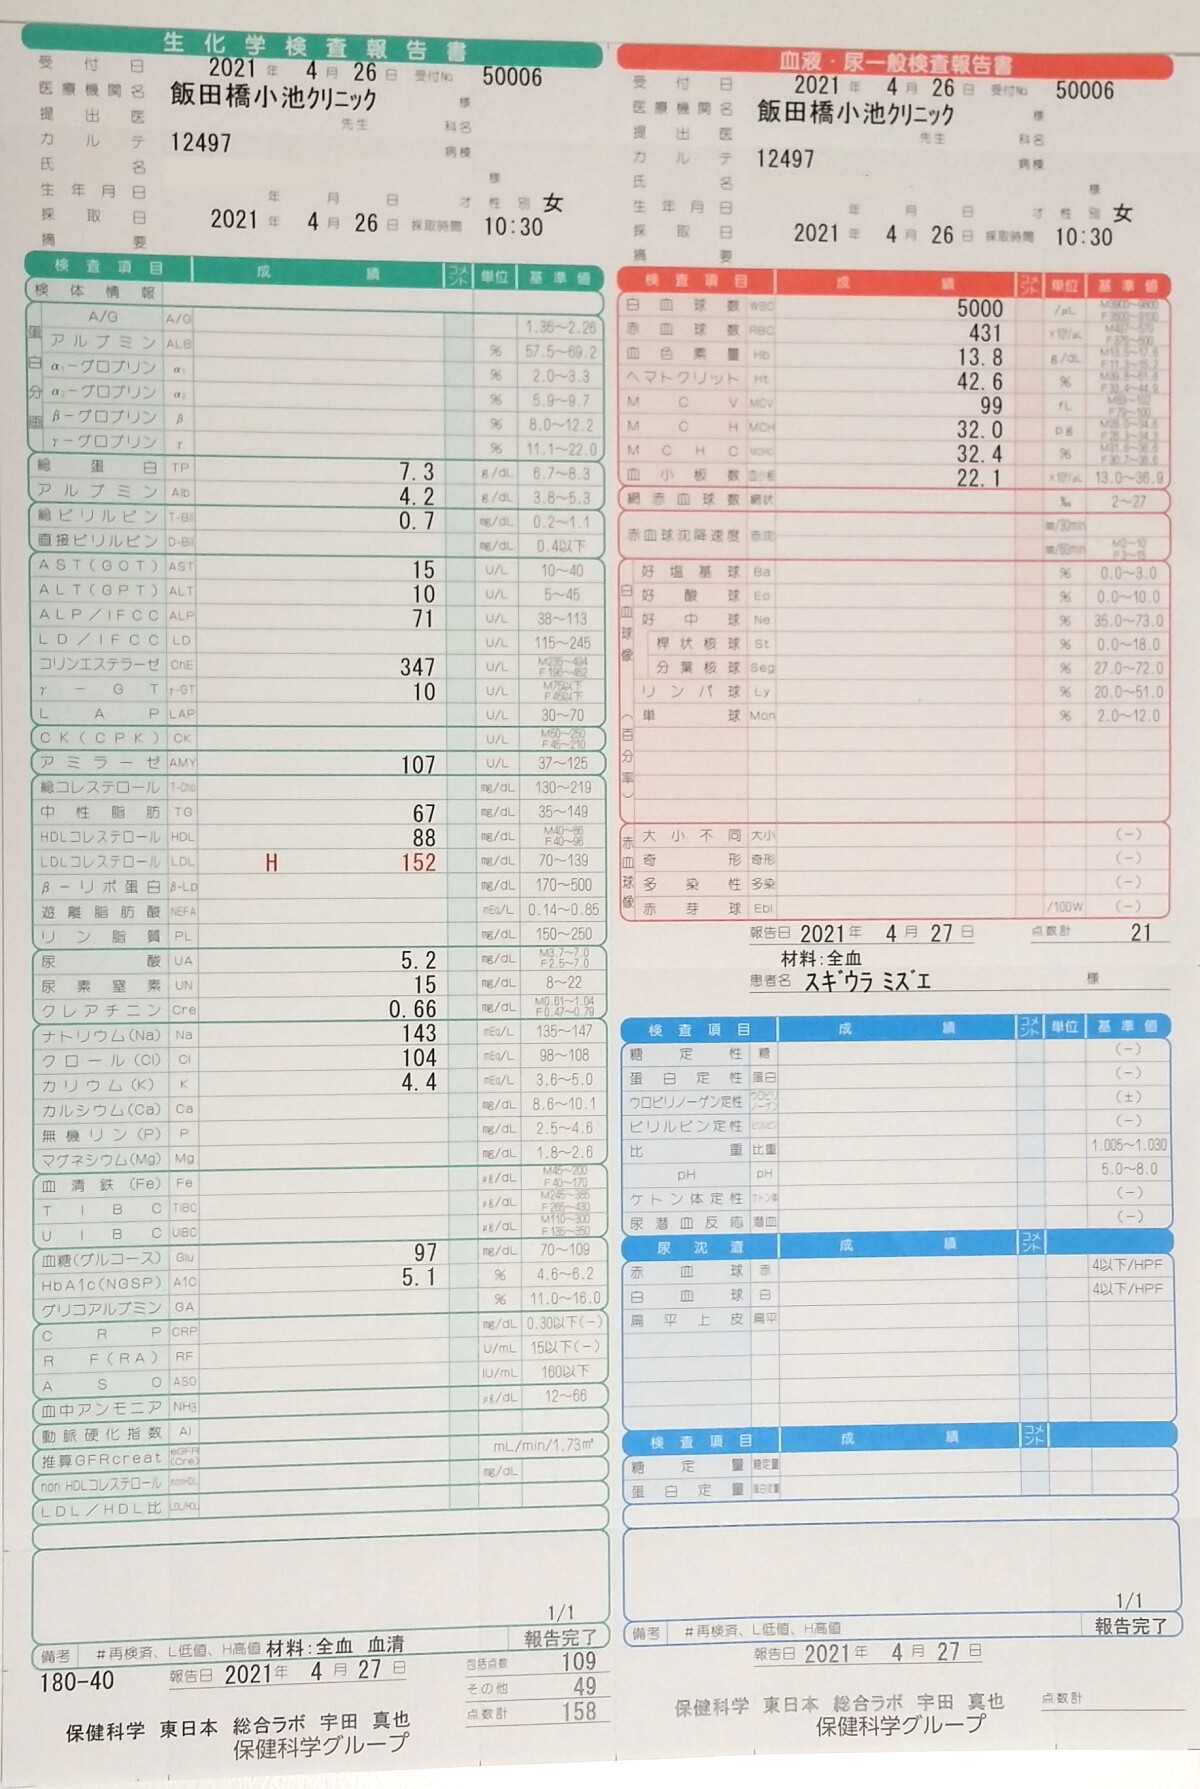 生化学検査報告書
受付日 2021年 4月 26日 受付No. 50006
医療機関名 飯田橋小池クリニック 様
提出医 先生 科名
カルテ 12497 病棟
氏名 様
生年月日 年 月 日 才 性別 女
採取日 2021年 4月 26日 採取時間 10:30
摘要
検査項目 成績 コメント 単位 基準値
検体情報
蛋白分画
A/G A/G 1.36~2.26
アルブミン ALB % 57.5~69.2
α₁-グロブリン α₁ % 2.0~3.3
α₂-グロブリン α₂ % 5.9~9.7
β-グロブリン β % 8.0~12.2
γ-グロブリン γ % 11.1~22.0
総蛋白 TP 7.3 g/dL 6.7~8.3
アルブミン Alb 4.2 g/dL 3.8~5.3
総ビリルビン T-Bil 0.7 mg/dL 0.2~1.1
直接ビリルビン D-Bil mg/dL 0.4以下
AST(GOT) AST 15 U/L 10~40
ALT(GPT) ALT 10 U/L 5~45
ALP/IFCC ALP 71 U/L 38~113
LD/IFCC LD U/L 115~245
コリンエステラーゼ ChE 347 U/L
γ-GT γ-GT 10 U/L M75以下 F45以下
LAP LAP U/L 30~70
CK(CPK) CK U/L M50~250 F45~210
アミラーゼ AMY 107 U/L 37~125
総コレステロール T-Cho mg/dL 130~219
中性脂肪 TG 67 mg/dL 35~149
HDLコレステロール HDL 88 mg/dL M40~86 F40~96
LDLコレステロール LDL H 152 mg/dL 70~139
β-リポ蛋白 β-Lp mg/dL 170~500
遊離脂肪酸 NEFA mEq/L 0.14~0.85
リン脂質 PL mg/dL 150~250
尿酸 UA 5.2 mg/dL M3.7~7.0 F2.5~7.0
尿素窒素 UN 15 mg/dL 8~22
クレアチニン Cre 0.66 mg/dL M0.61~1.04 F0.47~0.79
ナトリウム(Na) Na 143 mEq/L 135~147
クロール(Cl) Cl 104 mEq/L 98~108
カリウム(K) K 4.4 mEq/L 3.6~5.0
カルシウム(Ca) Ca mg/dL 8.6~10.1
無機リン(P) P mg/dL 2.5~4.6
マグネシウム(Mg) Mg mg/dL 1.8~2.6
血清鉄(Fe) Fe μg/dL M45~200 F40~170
TIBC TIBC μg/dL
UIBC UIBC μg/dL
血糖(グルコース) Glu 97 mg/dL 70~109
HbA1c(NGSP) A1C 5.1 % 4.6~6.2
グリコアルブミン GA % 11.0~16.0
CRP CRP mg/dL 0.30以下(-)
RF(RA) RF U/mL 15以下(-)
ASO ASO IU/mL 160以下
血中アンモニア NH3 μg/dL 12~66
動脈硬化指数 AI
推算GFRcreat eGFR(Cre) mL/min/1.73㎡
non HDLコレステロール nonHDL mg/dL
LDL/HDL比 LDL/HDL
1/1
備考 #再検済、L低値、H高値 材料:全血 血清 報告完了
180-40 報告日 2021年 4月 27日
包括点数 109
その他 49
点数計 158
保健科学 東日本 総合ラボ 宇田 真也
保健科学グループ
血液・尿一般検査報告書
受付日 2021年 4月 26日 受付No. 50006
医療機関名 飯田橋小池クリニック 様
提出医 先生 科名
カルテ 12497 病棟
氏名 様
生年月日 年 月 日 才 性別 女
採取日 2021年 4月 26日 採取時間 10:30
摘要
検査項目 成績 コメント 単位 基準値
白血球数 WBC 5000 /μL
赤血球数 RBC 431
血色素量 Hb 13.8 g/dL
ヘマトクリット Ht 42.6 %
MCV MCV 99 fL
MCH MCH 32.0 pg
MCHC MCHC 32.4 %
血小板数 血小板 22.1 13.0~36.9
網赤血球数 網状 ‰ 2~27
赤血球沈降速度 赤沈 mm/30min
mm/60min M2~10 F3~15
白血球像(百分率)
好塩基球 Ba % 0.0~3.0
好酸球 Eo % 0.0~10.0
好中球 Ne % 35.0~73.0
桿状核球 St % 0.0~18.0
分葉核球 Seg % 27.0~72.0
リンパ球 Ly % 20.0~51.0
単球 Mon % 2.0~12.0
赤血球像
大小不同 大小 (-)
奇形 奇形 (-)
多染性 多染 (-)
赤芽球 Ebl /100W (-)
報告日 2021年 4月 27日 点数計 21
材料:全血
患者名 スギウラ ミズエ 様
検査項目 成績 コメント 単位 基準値
糖定性 糖 (-)
蛋白定性 蛋白 (-)
ウロビリノーゲン定性 (±)
ビリルビン定性 (-)
比重 比重 1.005~1.030
pH pH 5.0~8.0
ケトン体定性 ケトン体 (-)
尿潜血反応 潜血 (-)
尿沈渣 成績 コメント
赤血球 赤 4以下/HPF
白血球 白 4以下/HPF
扁平上皮 扁平
検査項目 成績 コメント
糖定量 糖定量
蛋白定量 蛋白定量
1/1
備考 #再検済、L低値、H高値 報告完了
報告日 2021年 4月 27日
点数計
保健科学 東日本 総合ラボ 宇田 真也
保健科学グループ